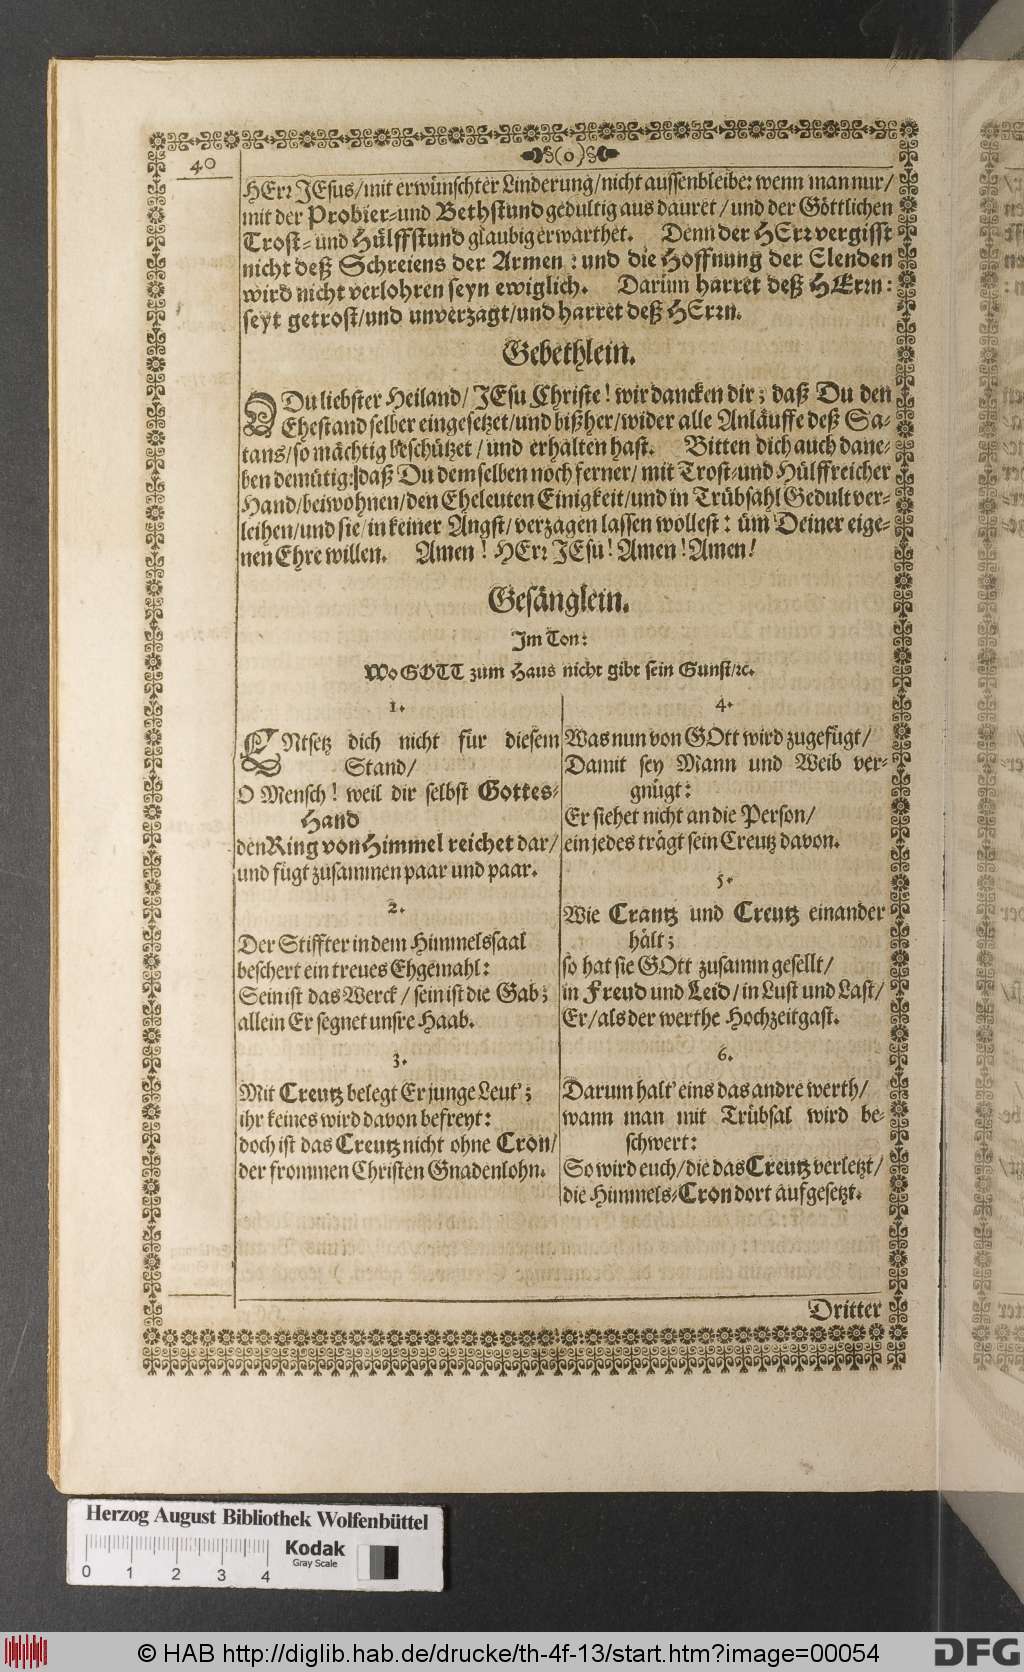 §(o)§
40
HErr JEsus/mit erwünschter Linderung/nicht aussenbleibe: wenn man nur/
mit der Probier-und Bethstund gedultig aus dauret/und der Göttlichen
Trost- und Hülffstund glaubig erwarthet. Denn der HErr vergisst
nicht deß Schreiens der Armen: und die Hoffnung der Elenden
wird nicht verlohren seyn ewiglich. Darüm harret deß HErrn:
seyt getrost/und unverzagt/und harret deß HErrn.
Gebethlein.
O Du liebster Heiland/ JEsu Christe! wir dancken dir; daß Du den
Ehestand selber eingesetzet/und bißher/wider alle Anläuffe deß Sa-
tans/so mächtig beschützet/und erhalten hast. Bitten dich auch dane-
ben demütig: daß Du demselben noch ferner/ mit Trost-und Hülffreicher
Hand/beiwohnen/den Eheleuten Einigkeit/und in Trübsahl Gedult ver-
leihen/und sie/in keiner Angst/verzagen lassen wollest: üm Deiner eige-
nen Ehre willen. Amen! HErr JEsu! Amen! Amen!
Gesänglein.
Im Ton:
Wo GOTT zum Haus nicht gibt sein Gunst/ꝛc.
1.
ENtsetz dich nicht für diesem
Stand/
O Mensch! weil dir selbst Gottes-
Hand
den Ring von Himmel reichet dar/
und fügt zusammen paar und paar.
2.
Der Stiffter in dem Himmelssaal
beschert ein treues Ehgemahl:
Sein ist das Werck/ sein ist die Gab;
allein Er segnet unsre Haab.
3.
Mit Creutz belegt Er junge Leut';
ihr keines wird davon befreyt:
doch ist das Creutz nicht ohne Cron/
der frommen Christen Gnadenlohn.
4.
Was nun von GOtt wird zugefügt/
Damit sey Mann und Weib ver-
gnügt:
Er siehet nicht an die Person/
ein jedes trägt sein Creutz davon.
5.
Wie Crantz und Creutz einander
hält;
so hat sie GOtt zusamm gesellt/
in Freud und Leid/in Lust und Last/
Er/als der werthe Hochzeitgast.
6.
Darum halt' eins das andre werth/
wann man mit Trübsal wird be-
schwert:
So wird euch/die das Creutz verletzt/
die Himmels-Cron dort aufgesetzt.
Dritter
Herzog August Bibliothek Wolfenbüttel
Kodak
Gray Scale
0 1 2 3 4
© HAB http://diglib.hab.de/drucke/th-4f-13/start.htm?image=00054
DFG